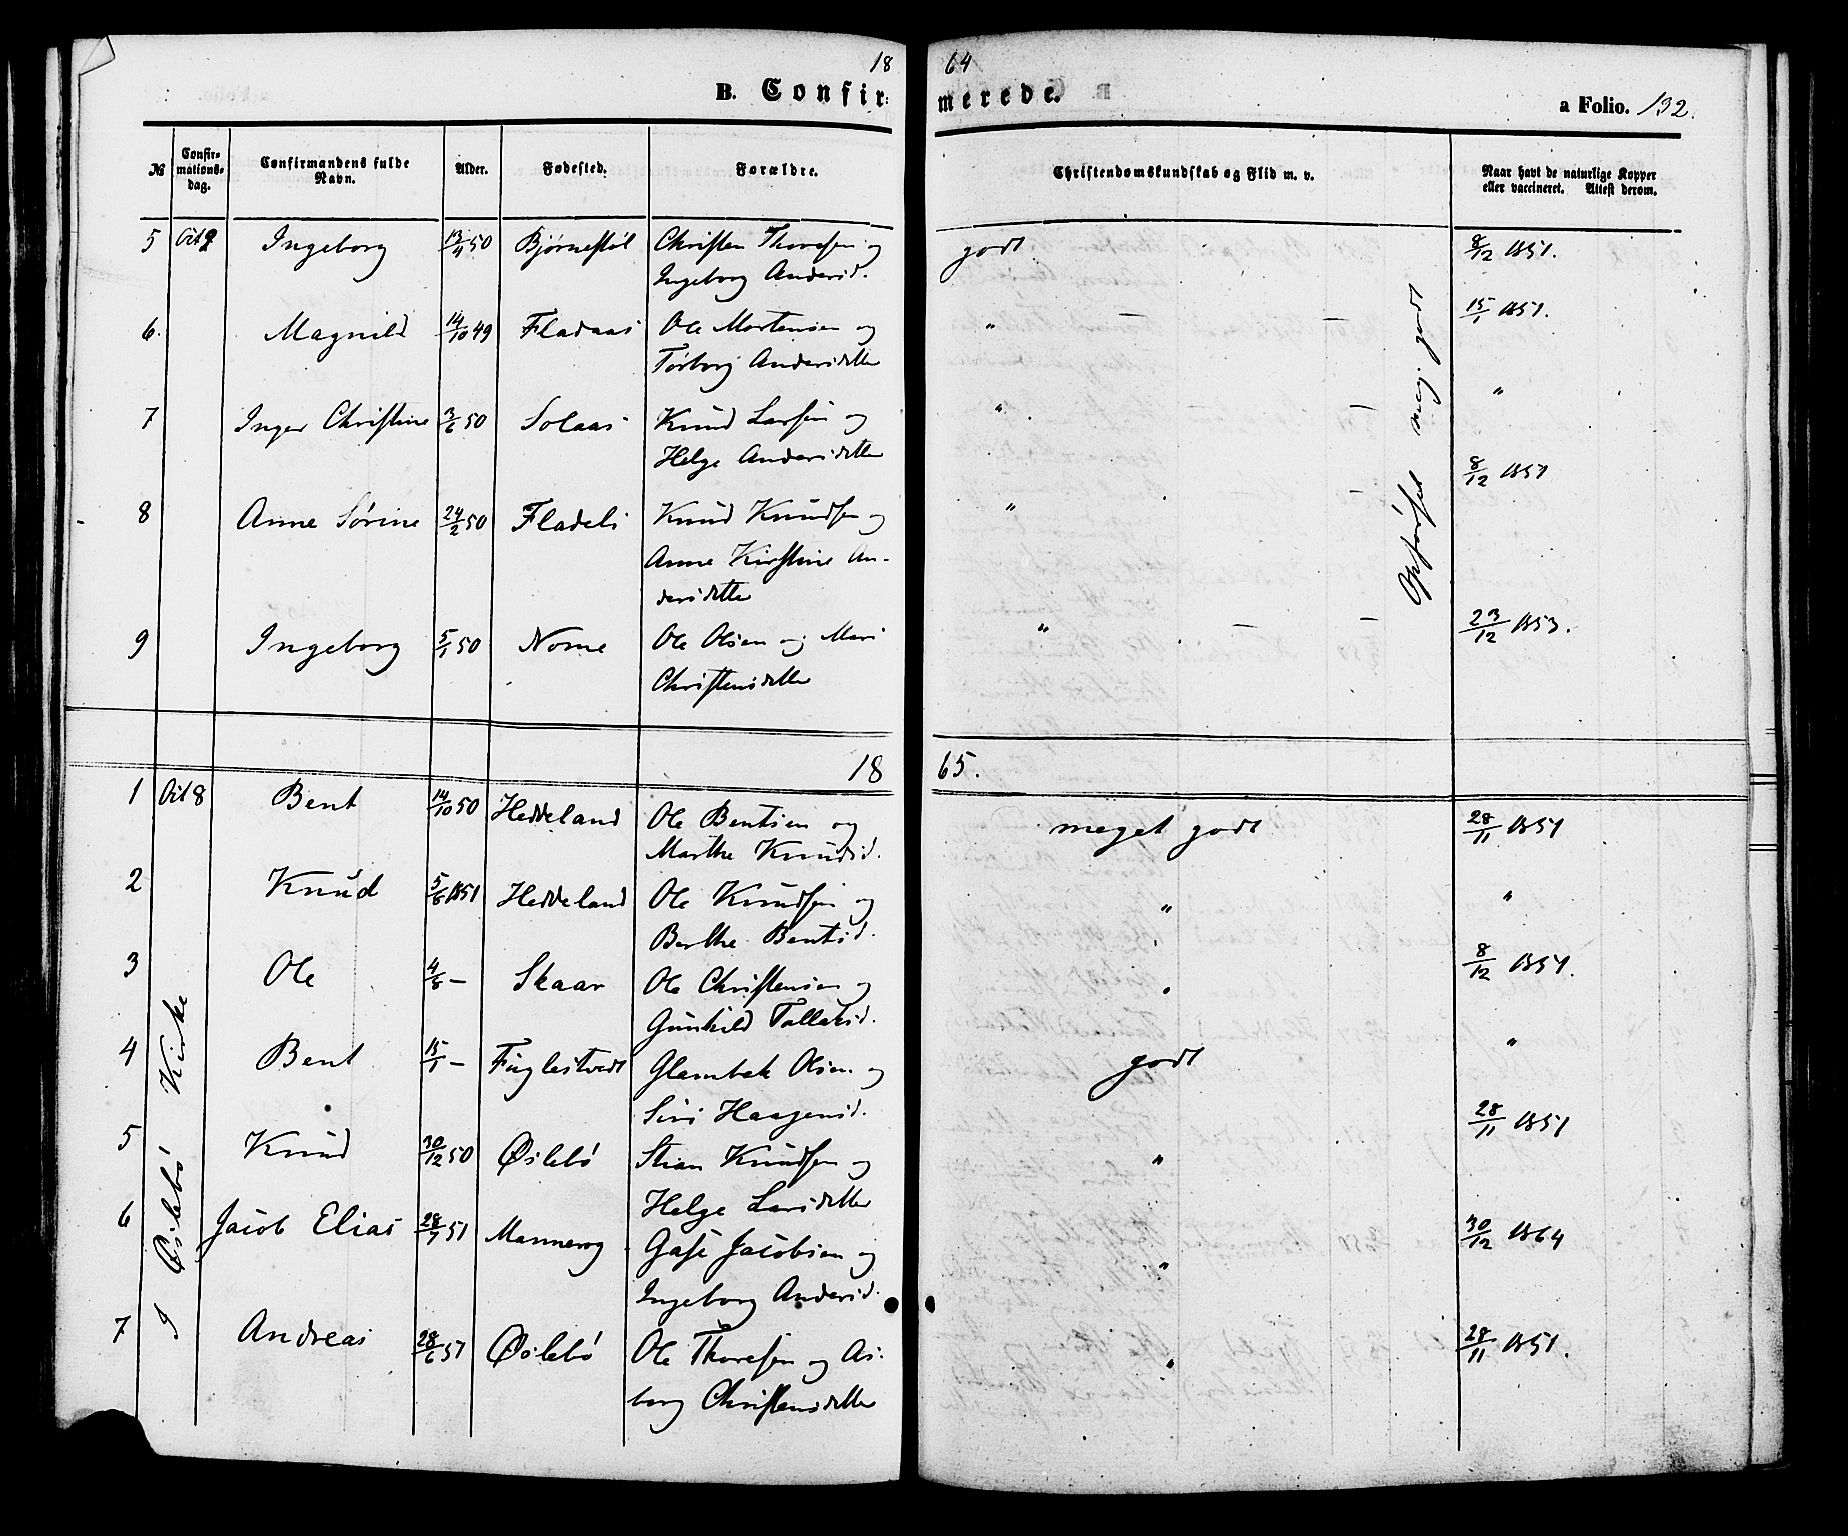 18 64
B. Confir: merede. a Folio. 132.
№ Confir-mations-dag. Confirmandens fulde Navn. Alder. Fødested. Forældre. Christendomskundskab og Flid m. v. Naar havt de naturlige Kopper eller vaccineret. Attest derom.
5 Oct 9 Ingeborg 13/4 50 Bjørnestøl Christen Thoresen og godt 8/12 1851.
Ingeborg Andersd.
6. Magnild 14/10 49 Fladaas Ole Mortensen og " — — 15/1 1851.
Torborg Andersdatter
7 Inger Christine 3/6 50 Solaas Knud Larsen og " — — "
Helge Andersdatter
8 Anne Sørine 24/2 50 Fladeli Knud Knudsen og " — 8/12 1851
Anne Kirstine An-
dersdatter
9 Ingeborg 5/1 50 Nome Ole Olsen og Mari " — — 23/12 1853.
Christensdatter
Opførsel meg. godt
18 65.
1 Oct 8 Bent 14/10 50 Heddeland Ole Bentsen og meget godt 28/11 1851
Marthe Knudsd.
2 Knud 5/8 1851 Heddeland Ole Knudsen og " "
Berthe Bentsd.
3 Ole 4/8 — Skaar Ole Christensen og " 8/12 1851.
Gunhild Tallaksd.
4 Bent 15/1 — Fuglestvedt Glambek Olsen og godt "
Siri Haagensd.
5 Knud 30/12 50 Øslebø Stian Knudsen og " 28/11 1851
Helge Larsdatter
6 Jacob Elias 28/7 51 Mannerog Gase Jacobsen og " 30/12 1864
Ingeborg Andersd.
7 Andreas 28/6 51 Øslebø Ole Thoresen og As: " 28/11 1851.
borg Christensdatter
I Øslebø Kirke